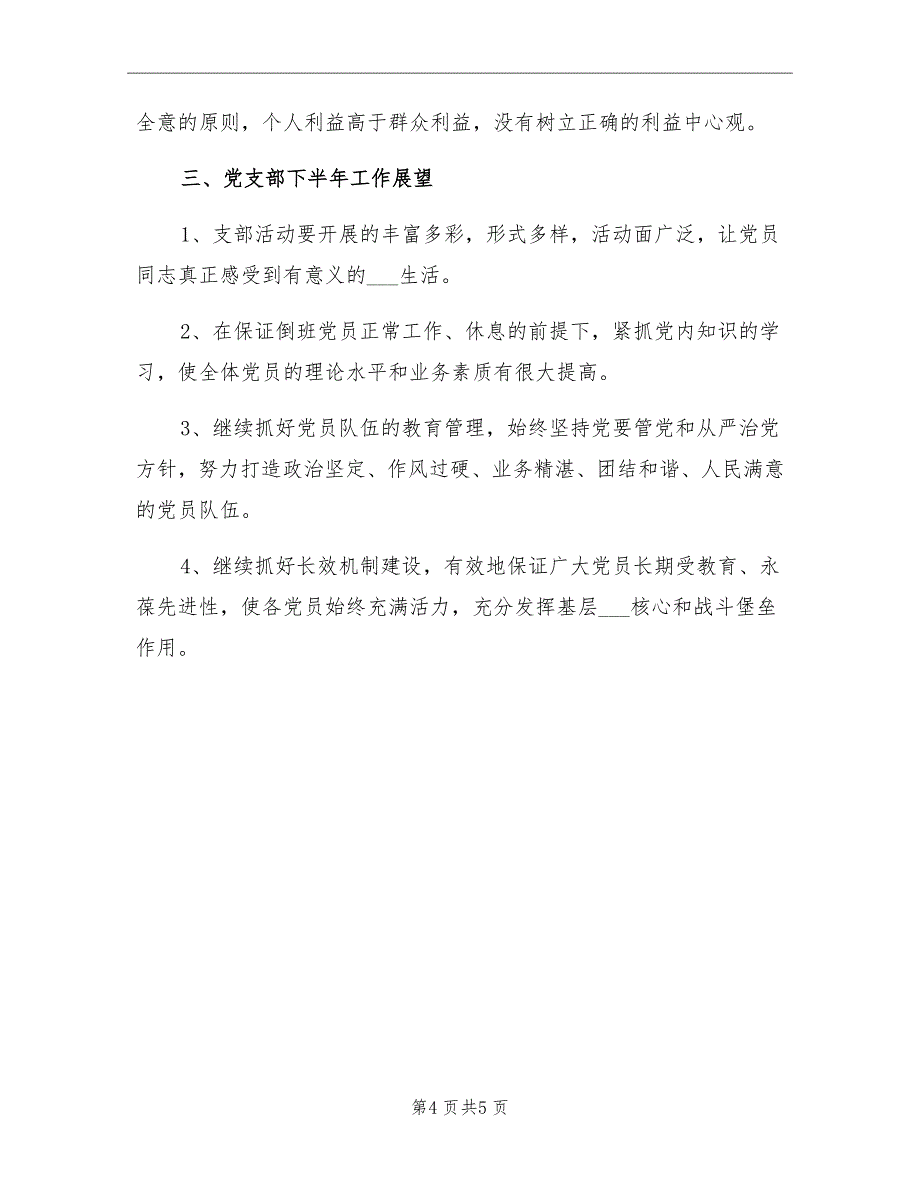 全意的原则，个人利益高于群众利益，没有树立正确的利益中心观。
三、党支部下半年工作展望
1、支部活动要开展的丰富多彩，形式多样，活动面广泛，让党员
同志真正感受到有意义的___生活。
2、在保证倒班党员正常工作、休息的前提下，紧抓党内知识的学
习，使全体党员的理论水平和业务素质有很大提高。
3、继续抓好党员队伍的教育管理，始终坚持党要管党和从严治党
方针，努力打造政治坚定、作风过硬、业务精湛、团结和谐、人民满意
的党员队伍。
4、继续抓好长效机制建设，有效地保证广大党员长期受教育、永
葆先进性，使各党员始终充满活力，充分发挥基层___核心和战斗堡垒
作用。
第4 页共5 页